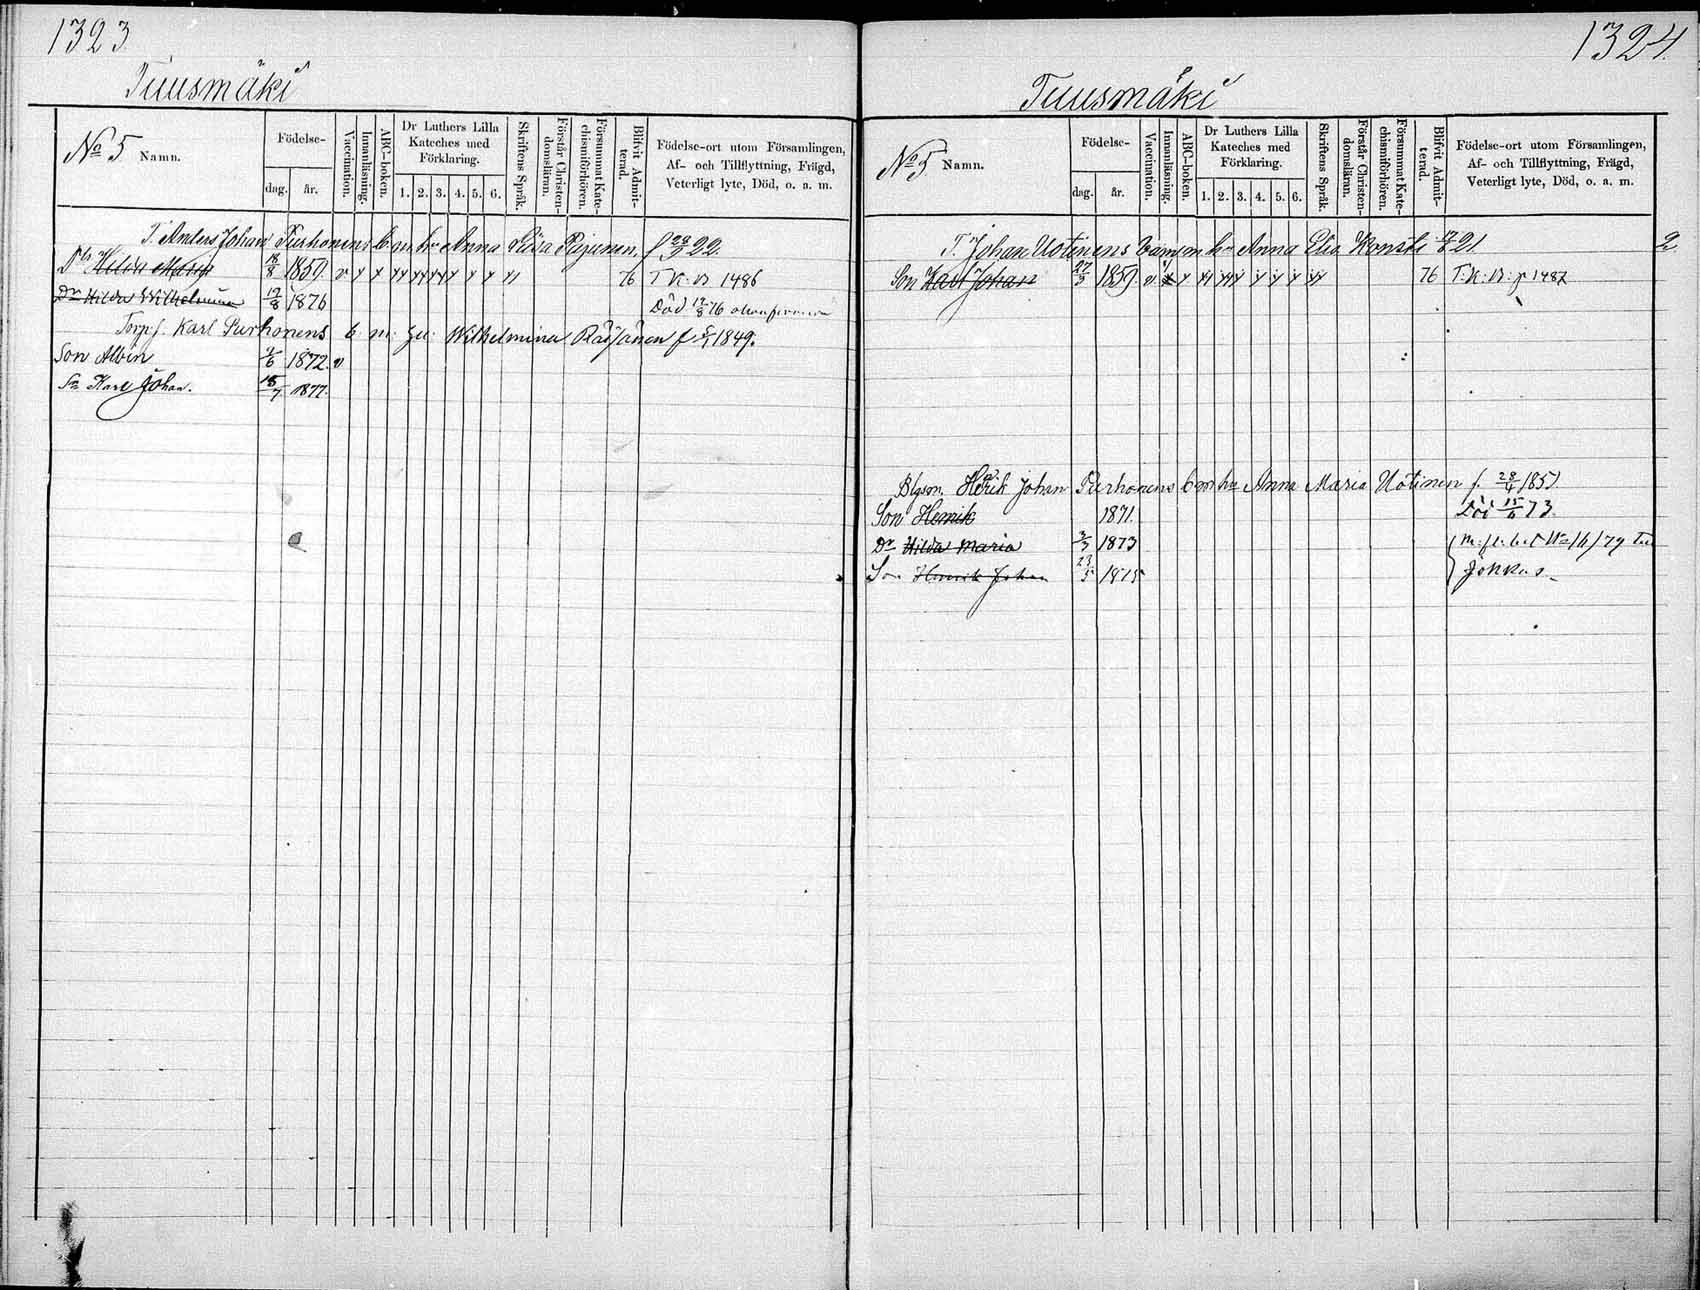 1323
Tuusmäki
No 5 Namn.
Födelse-
dag. år.
Vaccination.
Innanläsning.
ABC-boken.
Dr Luthers Lilla
Kateches med
Förklaring.
1. 2. 3. 4. 5. 6.
Skriftens Språk.
Förstår Christen-
domsläran.
Försummat Kate-
chismiförhören.
Blifvit Admit-
terad.
Födelse-ort utom Församlingen,
Af- och Tillflyttning, Frägd,
Veterligt lyte, Död, o. a. m.
T. Anders Johan Purhonens b m hu Anna Pijunen, f 22.
Dr Maria 18/8 1859 v x x 76 T. K. B 1486
Dr Hilda Wilhelmina 12/8 1876 Död 12/8 76
Torp. f. Karl Purhonens b. m. hu. Wilhelmina Räsänen f 1849.
Son Albin 1872. v
Sn Karl Johan. 18/7 1877.
1324.
Tuusmäki
No 5 Namn.
Födelse-
dag. år.
Vaccination.
Innanläsning.
ABC-boken.
Dr Luthers Lilla
Kateches med
Förklaring.
1. 2. 3. 4. 5. 6.
Skriftens Språk.
Förstår Christen-
domsläran.
Försummat Kate-
chismiförhören.
Blifvit Admit-
terad.
Födelse-ort utom Församlingen,
Af- och Tillflyttning, Frägd,
Veterligt lyte, Död, o. a. m.
T. Johan Uotinens barn m hu Anna Elia 21 2
Son Karl Johan 27/3 1859. v 76 T. K. B. p 1487
Henrik Johan Purhonens b m hu Anna Maria Uotinen f. 1851
Son Henrik 1871. Död 15/6 73.
Dr Hilda Maria 3/3 1873
Son Henrik Johan 23/5 1875 Jokkas